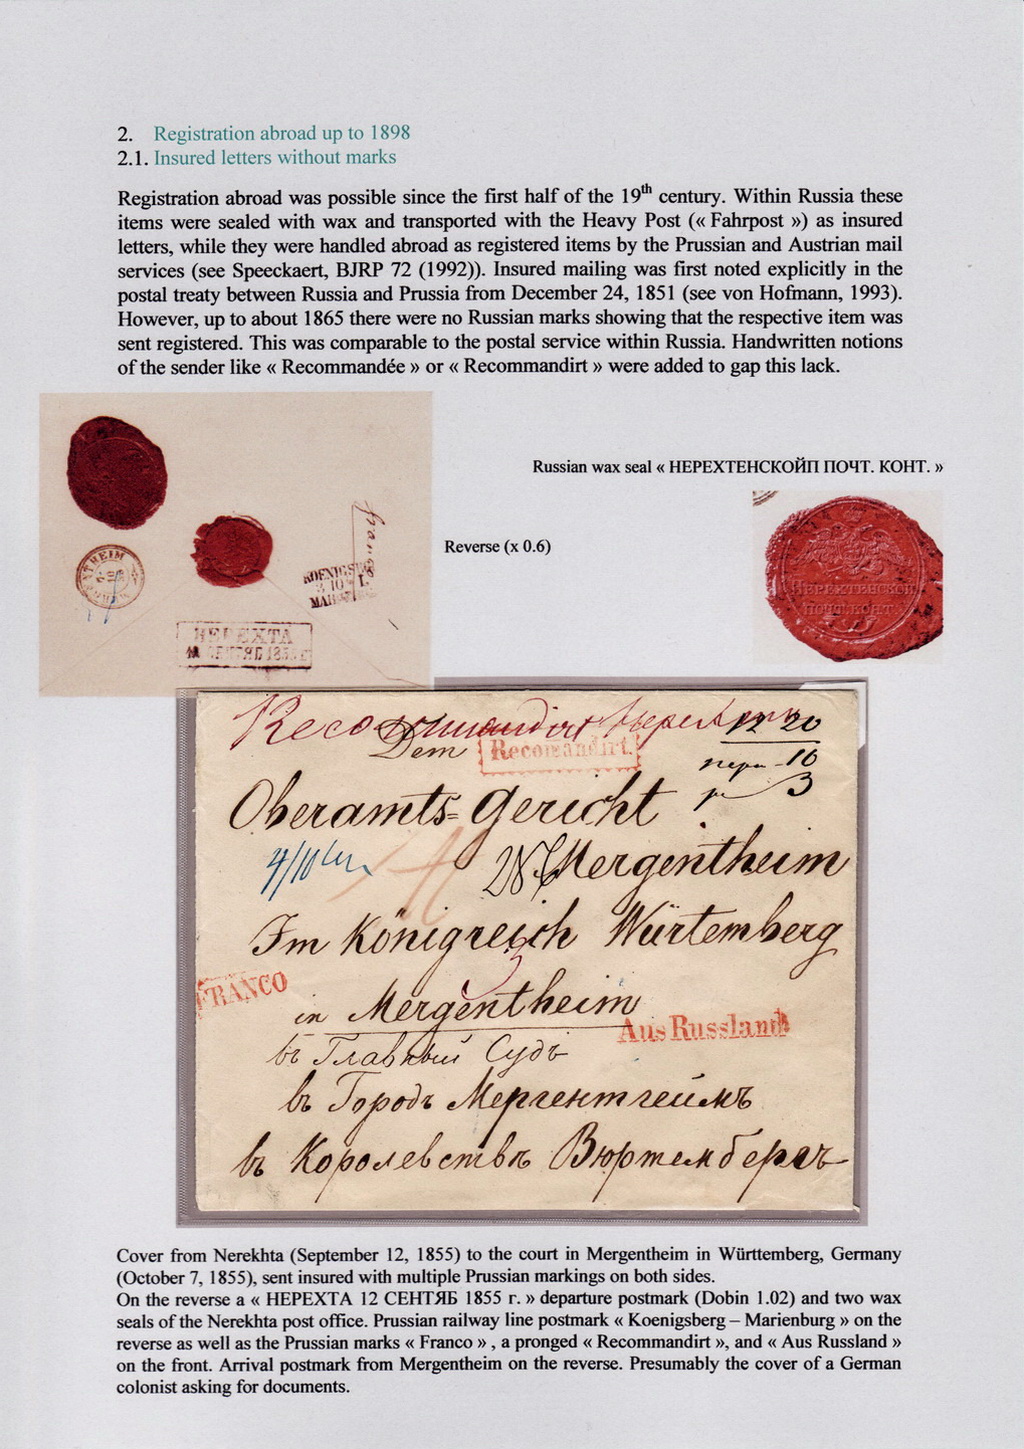 2. Registration abroad up to 1898
2.1. Insured letters without marks
Registration abroad was possible since the first half of the 19th century. Within Russia these
items were sealed with wax and transported with the Heavy Post (« Fahrpost ») as insured
letters, while they were handled abroad as registered items by the Prussian and Austrian mail
services (see Speeckaert, BJRP 72 (1992)). Insured mailing was first noted explicitly in the
postal treaty between Russia and Prussia from December 24, 1851 (see von Hofmann, 1993).
However, up to about 1865 there were no Russian marks showing that the respective item was
sent registered. This was comparable to the postal service within Russia. Handwritten notions
of the sender like « Recommandée » or « Recommandirt » were added to gap this lack.
Russian wax seal « НЕРЕХТЕНСКОЙП ПОЧТ. КОНТ. »
Reverse (x 0.6)
НЕРЕХТИНСКОЙ
ПОЧТ. КОНТ.
franco
НЕРЕХТА
Recommandirt
12 20
Dem
Recomandirt.
10
3
Oberamts=Gericht
Mergentheim
Im Königreich Würtemberg
FRANCO
in Mergentheim
Aus Russland
въ Главный Судъ
въ Городъ Мергентгеимъ
въ Королевствѣ Вюртембергъ
Cover from Nerekhta (September 12, 1855) to the court in Mergentheim in Württemberg, Germany
(October 7, 1855), sent insured with multiple Prussian markings on both sides.
On the reverse a « НЕРЕХТА 12 СЕНТЯБ 1855 г. » departure postmark (Dobin 1.02) and two wax
seals of the Nerekhta post office. Prussian railway line postmark « Koenigsberg – Marienburg » on the
reverse as well as the Prussian marks « Franco » , a pronged « Recommandirt », and « Aus Russland »
on the front. Arrival postmark from Mergentheim on the reverse. Presumably the cover of a German
colonist asking for documents.